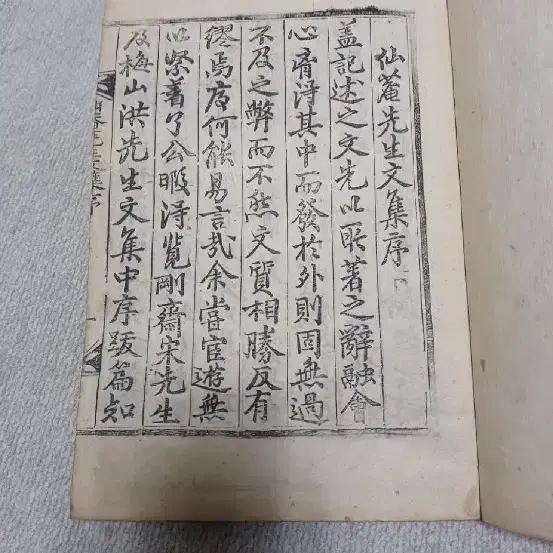 仙菴先生文集序
盖記述之文先以所著之辭融會
心齊淂其中而發於外則固無過
不及之弊而不然文質相勝反有
繆焉庸何能易言㢤余嘗宦遊無
以緊着了公暇淂覧剛齋宋先生
及梅山洪先生文集中序跋篇知